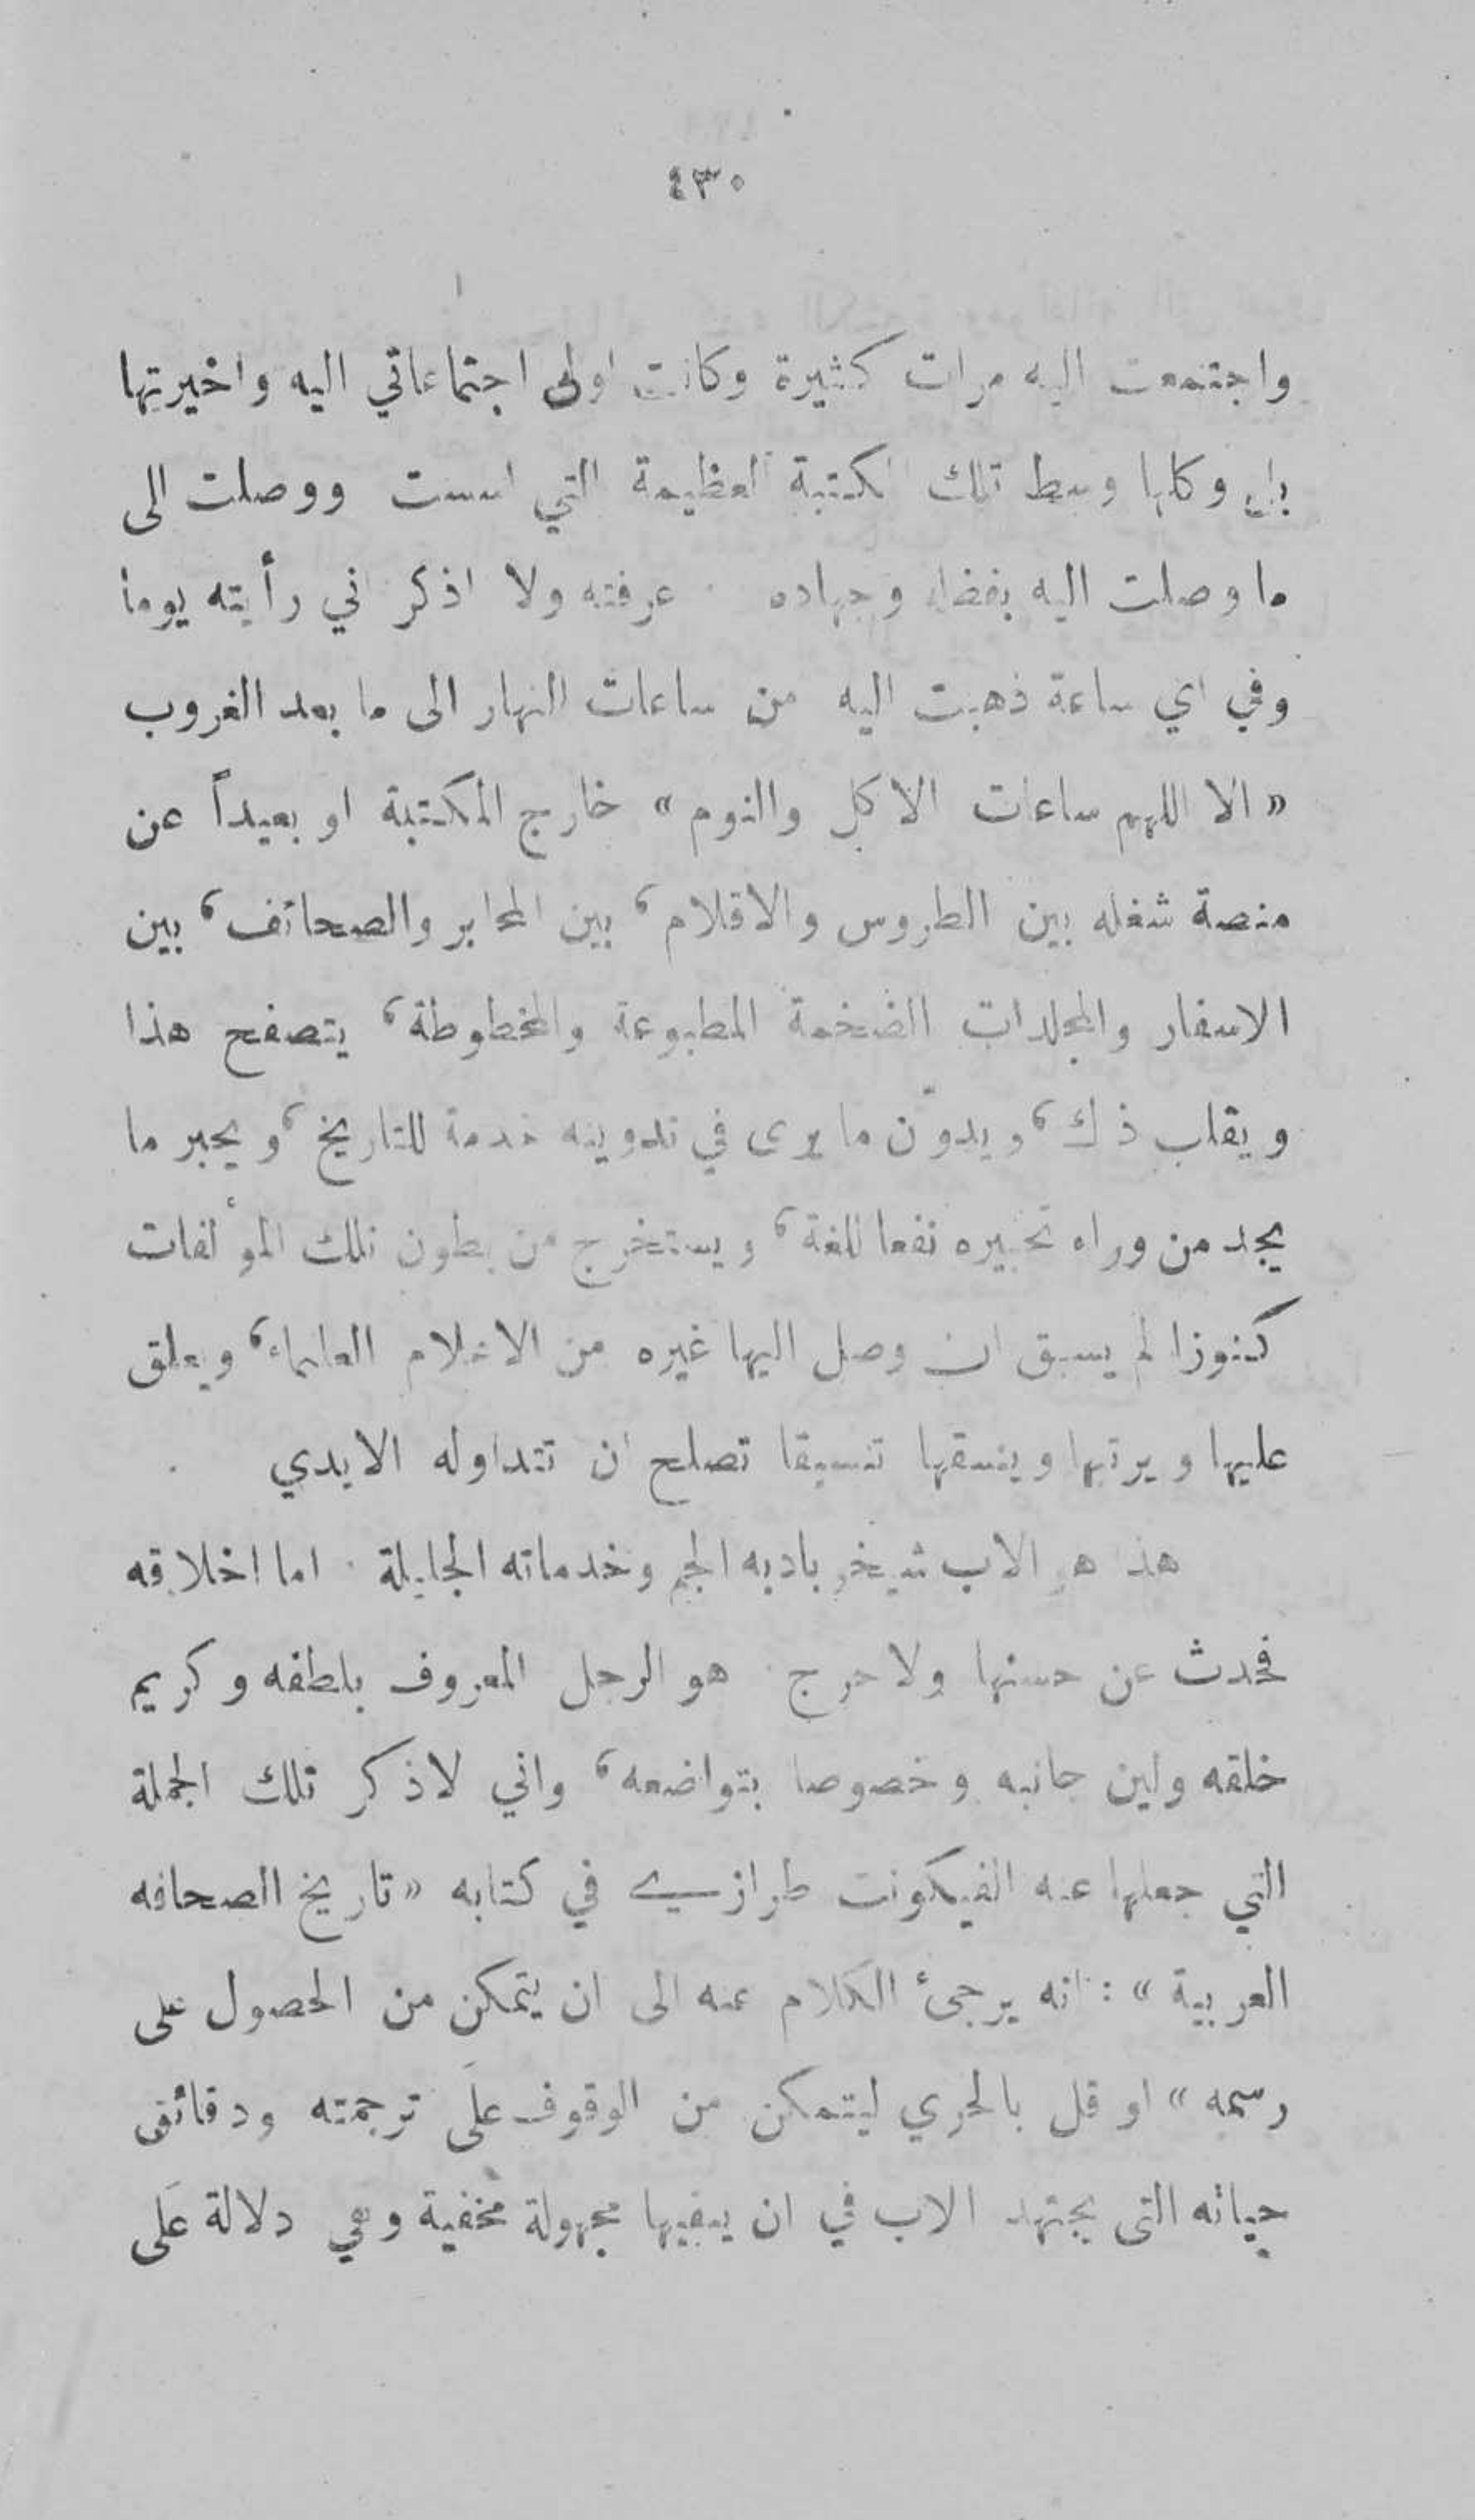 ٤٣٠
واجتمعت اليه مرات كثيرة وكانت اولى اجتماعاتي اليه واخيرتها
بل وكلها وسط تلك المكتبة العظيمة التي اسست ووصلت الى
ما وصلت اليه بفضله وجهاده . عرفته ولا اذكر اني رأيته يوما
وفي اي ساعة ذهبت اليه من ساعات النهار الى ما بعد الغروب
« الا اللهم ساعات الاكل والنوم » خارج المكتبة او بعيداً عن
منصة شغله بين الطروس والاقلام ، بين المحابر والصحائف ، بين
الاسفار والمجلدات الضخمة المطبوعة والمخطوطة ، يتصفح هذا
ويقلب ذلك ، ويدوّن ما يرى في تدوينه خدمة للتاريخ ، ويحبر ما
يجد من وراء تحبيره نفعا للغة ، ويستخرج من بطون تلك المؤلفات
كنوزا لم يسبق ان وصل اليها غيره من الاعلام العلماء ، ويعلق
عليها ويرتبها وينسقها تنسيقا تصلح ان تتداوله الايدي
هذا هو الاب شيخو بادبه الجم وخدماته الجليلة . اما اخلاقه
فحدث عن حسنها ولا حرج . هو الرجل المعروف بلطفه وكريم
خلقه ولين جانبه وخصوصا بتواضعه ، واني لاذكر تلك الجملة
التي جعلها عنه الفيكونت طرازي في كتابه « تاريخ الصحافه
العربية » : انه يرجئ الكلام عنه الى ان يتمكن من الحصول على
رسمه » او قل بالحري ليتمكن من الوقوف على ترجمته ودقائق
حياته التي يجتهد الاب في ان يبقيها مجهولة مخفية وهي دلالة على